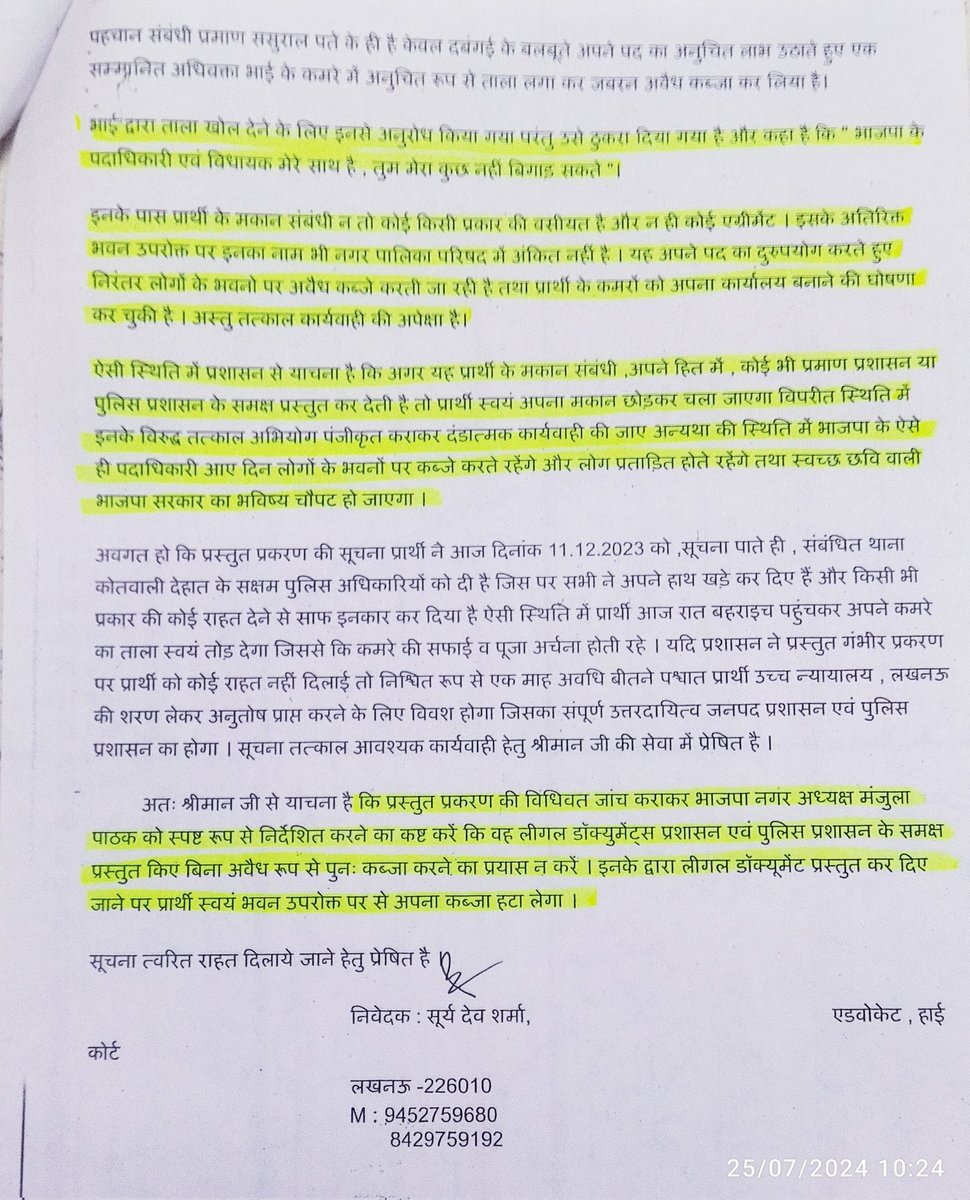 पहचान संबंधी प्रमाण ससुराल पते के ही है केवल दबंगई के बलबूते अपने पद का अनुचित लाभ उठाते हुए एक
सम्मानित अधिवक्ता भाई के कमरे में अनुचित रूप से ताला लगा कर जबरन अवैध कब्जा कर लिया है।
भाई द्वारा ताला खोल देने के लिए इनसे अनुरोध किया गया परंतु उसे ठुकरा दिया गया है और कहा है कि " भाजपा के
पदाधिकारी एवं विधायक मेरे साथ है , तुम मेरा कुछ नहीं बिगाड़ सकते "।
इनके पास प्रार्थी के मकान संबंधी न तो कोई किसी प्रकार की वसीयत है और न ही कोई एग्रीमेंट । इसके अतिरिक्त
भवन उपरोक्त पर इनका नाम भी नगर पालिका परिषद में अंकित नहीं है । यह अपने पद का दुरुपयोग करते हुए
निरंतर लोगों के भवनो पर अवैध कब्जे करती जा रही है तथा प्रार्थी के कमरों को अपना कार्यालय बनाने की घोषणा
कर चुकी है । अस्तु तत्काल कार्यवाही की अपेक्षा है।
ऐसी स्थिति में प्रशासन से याचना है कि अगर यह प्रार्थी के मकान संबंधी ,अपने हित में , कोई भी प्रमाण प्रशासन या
पुलिस प्रशासन के समक्ष प्रस्तुत कर देती है तो प्रार्थी स्वयं अपना मकान छोड़कर चला जाएगा विपरीत स्थिति में
इनके विरुद्ध तत्काल अभियोग पंजीकृत कराकर दंडात्मक कार्यवाही की जाए अन्यथा की स्थिति में भाजपा के ऐसे
ही पदाधिकारी आए दिन लोगों के भवनों पर कब्जे करते रहेंगे और लोग प्रताड़ित होते रहेंगे तथा स्वच्छ छवि वाली
भाजपा सरकार का भविष्य चौपट हो जाएगा ।
अवगत हो कि प्रस्तुत प्रकरण की सूचना प्रार्थी ने आज दिनांक 11.12.2023 को ,सूचना पाते ही , संबंधित थाना
कोतवाली देहात के सक्षम पुलिस अधिकारियों को दी है जिस पर सभी ने अपने हाथ खड़े कर दिए हैं और किसी भी
प्रकार की कोई राहत देने से साफ इनकार कर दिया है ऐसी स्थिति में प्रार्थी आज रात बहराइच पहुंचकर अपने कमरे
का ताला स्वयं तोड़ देगा जिससे कि कमरे की सफाई व पूजा अर्चना होती रहे । यदि प्रशासन ने प्रस्तुत गंभीर प्रकरण
पर प्रार्थी को कोई राहत नहीं दिलाई तो निश्चित रूप से एक माह अवधि बीतने पश्चात प्रार्थी उच्च न्यायालय , लखनऊ
की शरण लेकर अनुतोष प्राप्त करने के लिए विवश होगा जिसका संपूर्ण उत्तरदायित्व जनपद प्रशासन एवं पुलिस
प्रशासन का होगा । सूचना तत्काल आवश्यक कार्यवाही हेतु श्रीमान जी की सेवा में प्रेषित है ।
अतः श्रीमान जी से याचना है कि प्रस्तुत प्रकरण की विधिवत जांच कराकर भाजपा नगर अध्यक्ष मंजुला
पाठक को स्पष्ट रूप से निर्देशित करने का कष्ट करें कि वह लीगल डॉक्युमेंट्स प्रशासन एवं पुलिस प्रशासन के समक्ष
प्रस्तुत किए बिना अवैध रूप से पुनः कब्जा करने का प्रयास न करें । इनके द्वारा लीगल डॉक्यूमेंट प्रस्तुत कर दिए
जाने पर प्रार्थी स्वयं भवन उपरोक्त पर से अपना कब्जा हटा लेगा ।
सूचना त्वरित राहत दिलाये जाने हेतु प्रेषित है
निवेदक : सूर्य देव शर्मा, एडवोकेट , हाई
कोर्ट
लखनऊ -226010
M : 9452759680
8429759192
25/07/2024 10:24